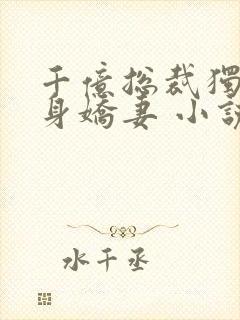 千億總裁獨
身嬌妻 小說
水千丞